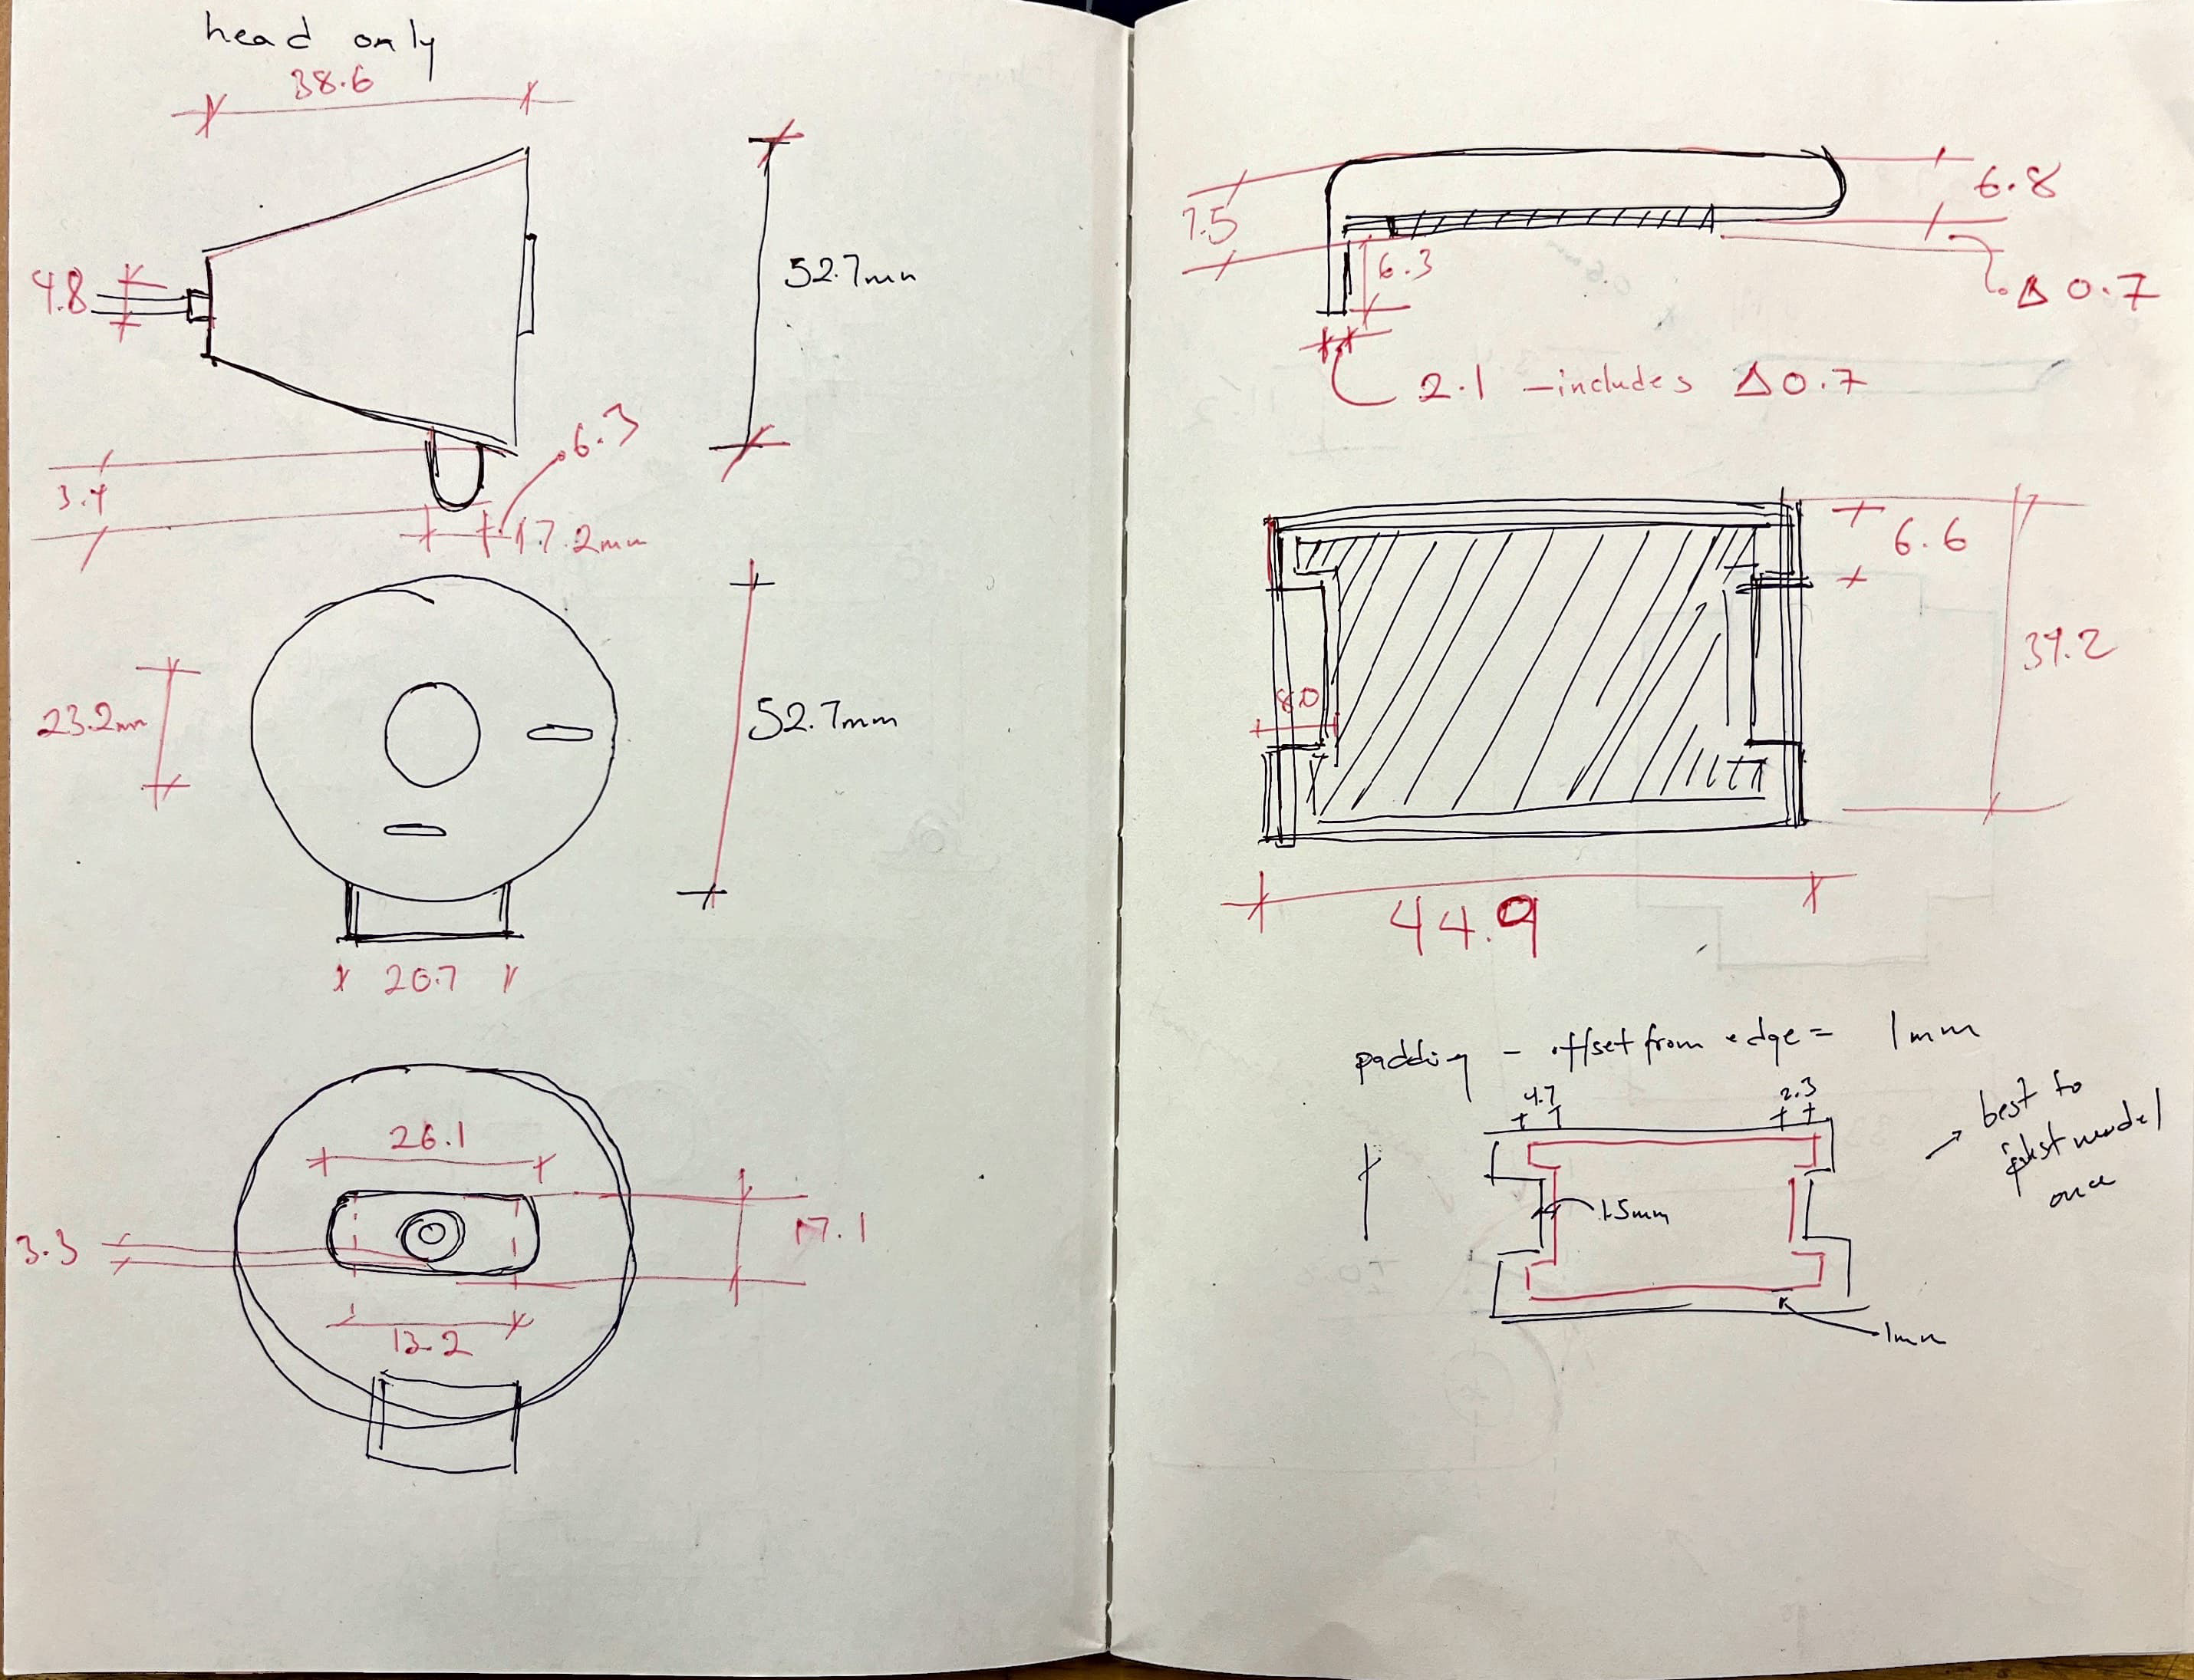 head only
38.6
4.8
52.7mm
6.3
3.4
7.2mm
23.2mm
52.7mm
20.7
26.1
3.3
17.1
13.2
6.8
7.5
6.3
Δ 0.7
2.1 - includes Δ0.7
6.6
39.2
8.0
44.9
padding - offset from edge = 1mm
4.7
2.3
best to
just model
once
1.5mm
1mm